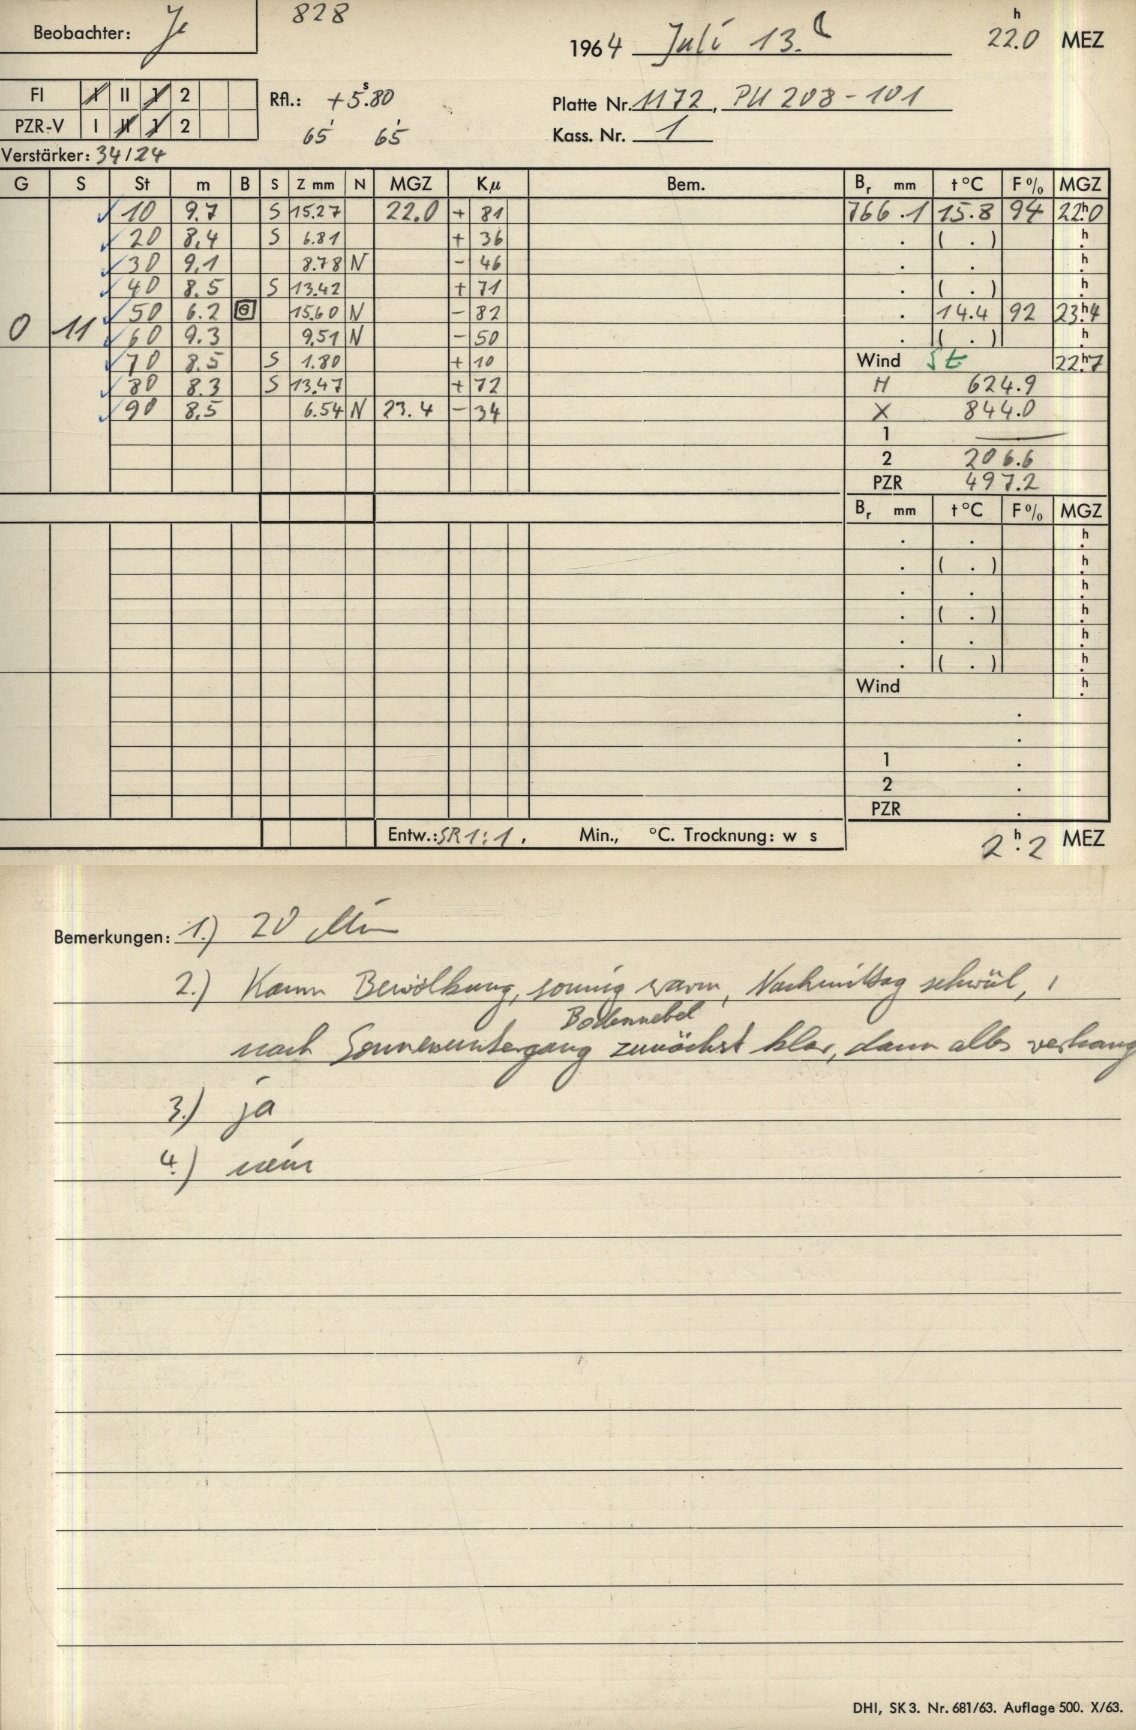 Beobachter: Je 828 1964 Juli 13. 22h.0 MEZ
FI I II 1 2 Rfl.: +5s.80 Platte Nr. 1172, PU 208-101
PZR-V I II 1 2 65' 65' Kass. Nr. 1
Verstärker: 34/24
G S St m B S Z mm N MGZ Kµ Bem. Br mm t°C F% MGZ
10 9.7 S 15.27 22.0 + 81 766.1 15.8 94 22h.0
20 8.4 S 6.81 + 36 . ( . ) h.
30 9.1 8.78 N - 46 . . h.
40 8.5 S 13.42 + 71 . ( . ) h.
0 11 50 6.2 G 15.60 N - 82 . 14.4 92 23h.4
60 9.3 9.51 N - 50 . ( . ) h.
70 8.5 S 1.80 + 10 Wind St 22h.7
80 8.3 S 13.47 + 72 H 624.9
90 8.5 6.54 N 23.4 - 34 X 844.0
1 —
2 206.6
PZR 497.2
Br mm t°C F% MGZ
. . h.
. ( . ) h.
. . h.
. ( . ) h.
. . h.
. ( . ) h.
Wind h.
.
.
1 .
2 .
PZR .
Entw.: SR 1:1, Min., °C. Trocknung: w s 2h.2 MEZ
Bemerkungen: 1.) 20 Min
2.) Kaum Bewölkung, sonnig warm, Nachmittag schwül,
Bodennebel
nach Sonnenuntergang zunächst klar, dann alles verhang
3.) ja
4.) nein
DHI, SK 3. Nr. 681/63. Auflage 500. X/63.